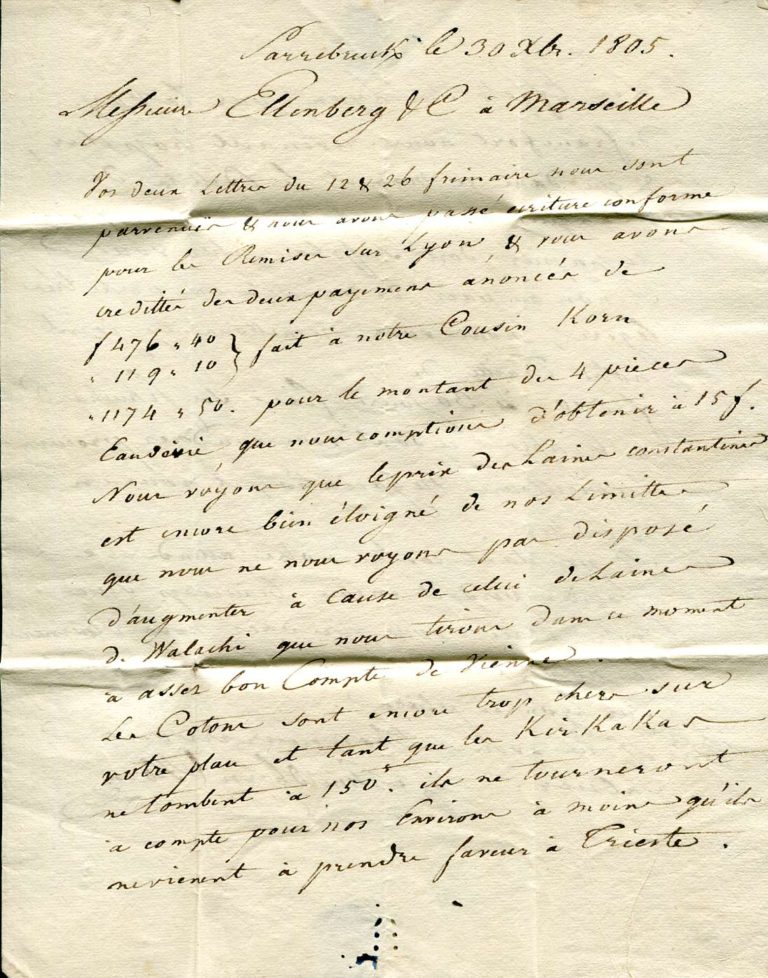 Sarrebruck le 30 Xbr. 1805.
Messieurs Ellenberg & C à Marseille
Vos deux Lettres du 12 & 26 frimaire nous sont
parvenuës & nous avons passé ecriture conforme
pour les Remises sur Lyon & vous avons
creditté des deux payemens anoncés de
f 476 " 40 } fait à notre Cousin Korn
" 119 " 10
" 1174 " 50. pour le montant des 4 pieces
que nous comptions d'obtenir à 15 f.
Nous voyons que le prix des Laines constantines
est encore bien éloigné de nos Limittes
que nous ne nous voyons pas disposé
d'augmenter à Cause de celui de Laines
d. Walachi que nous tirons dans ce moment
à assez bon Compte de Vienne.
Les Cotons sont encore trop chers sur
votre place et tant que les KirKaKas
ne tombent à 150 f. ils ne tourneront
à compte pour nos Environs à moins qu'ils
ne vienent à prendre faveur à Trieste.